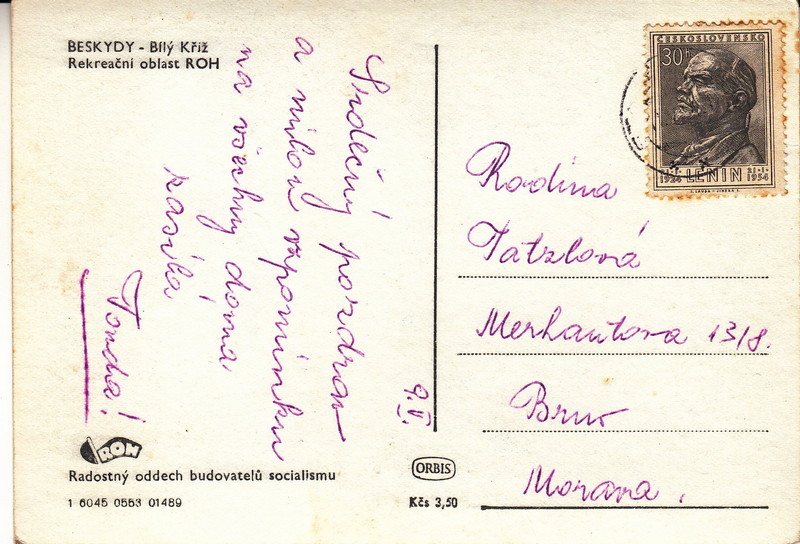 BESKYDY - Bílý Kříž
Rekreační oblast ROH
Srdečný pozdrav
a milou vzpomínku
na všechny doma,
zasílá
Tonda!
9.V.
ROH
Radostný oddech budovatelů socialismu
1 6045 0553 01489
ORBIS
Kčs 3,50
ČESKOSLOVENSKO
30h
21·I·
1924 LENIN 1954
Rodina
Tatzlová
Merhautova 13/8.
Brno
Morava.